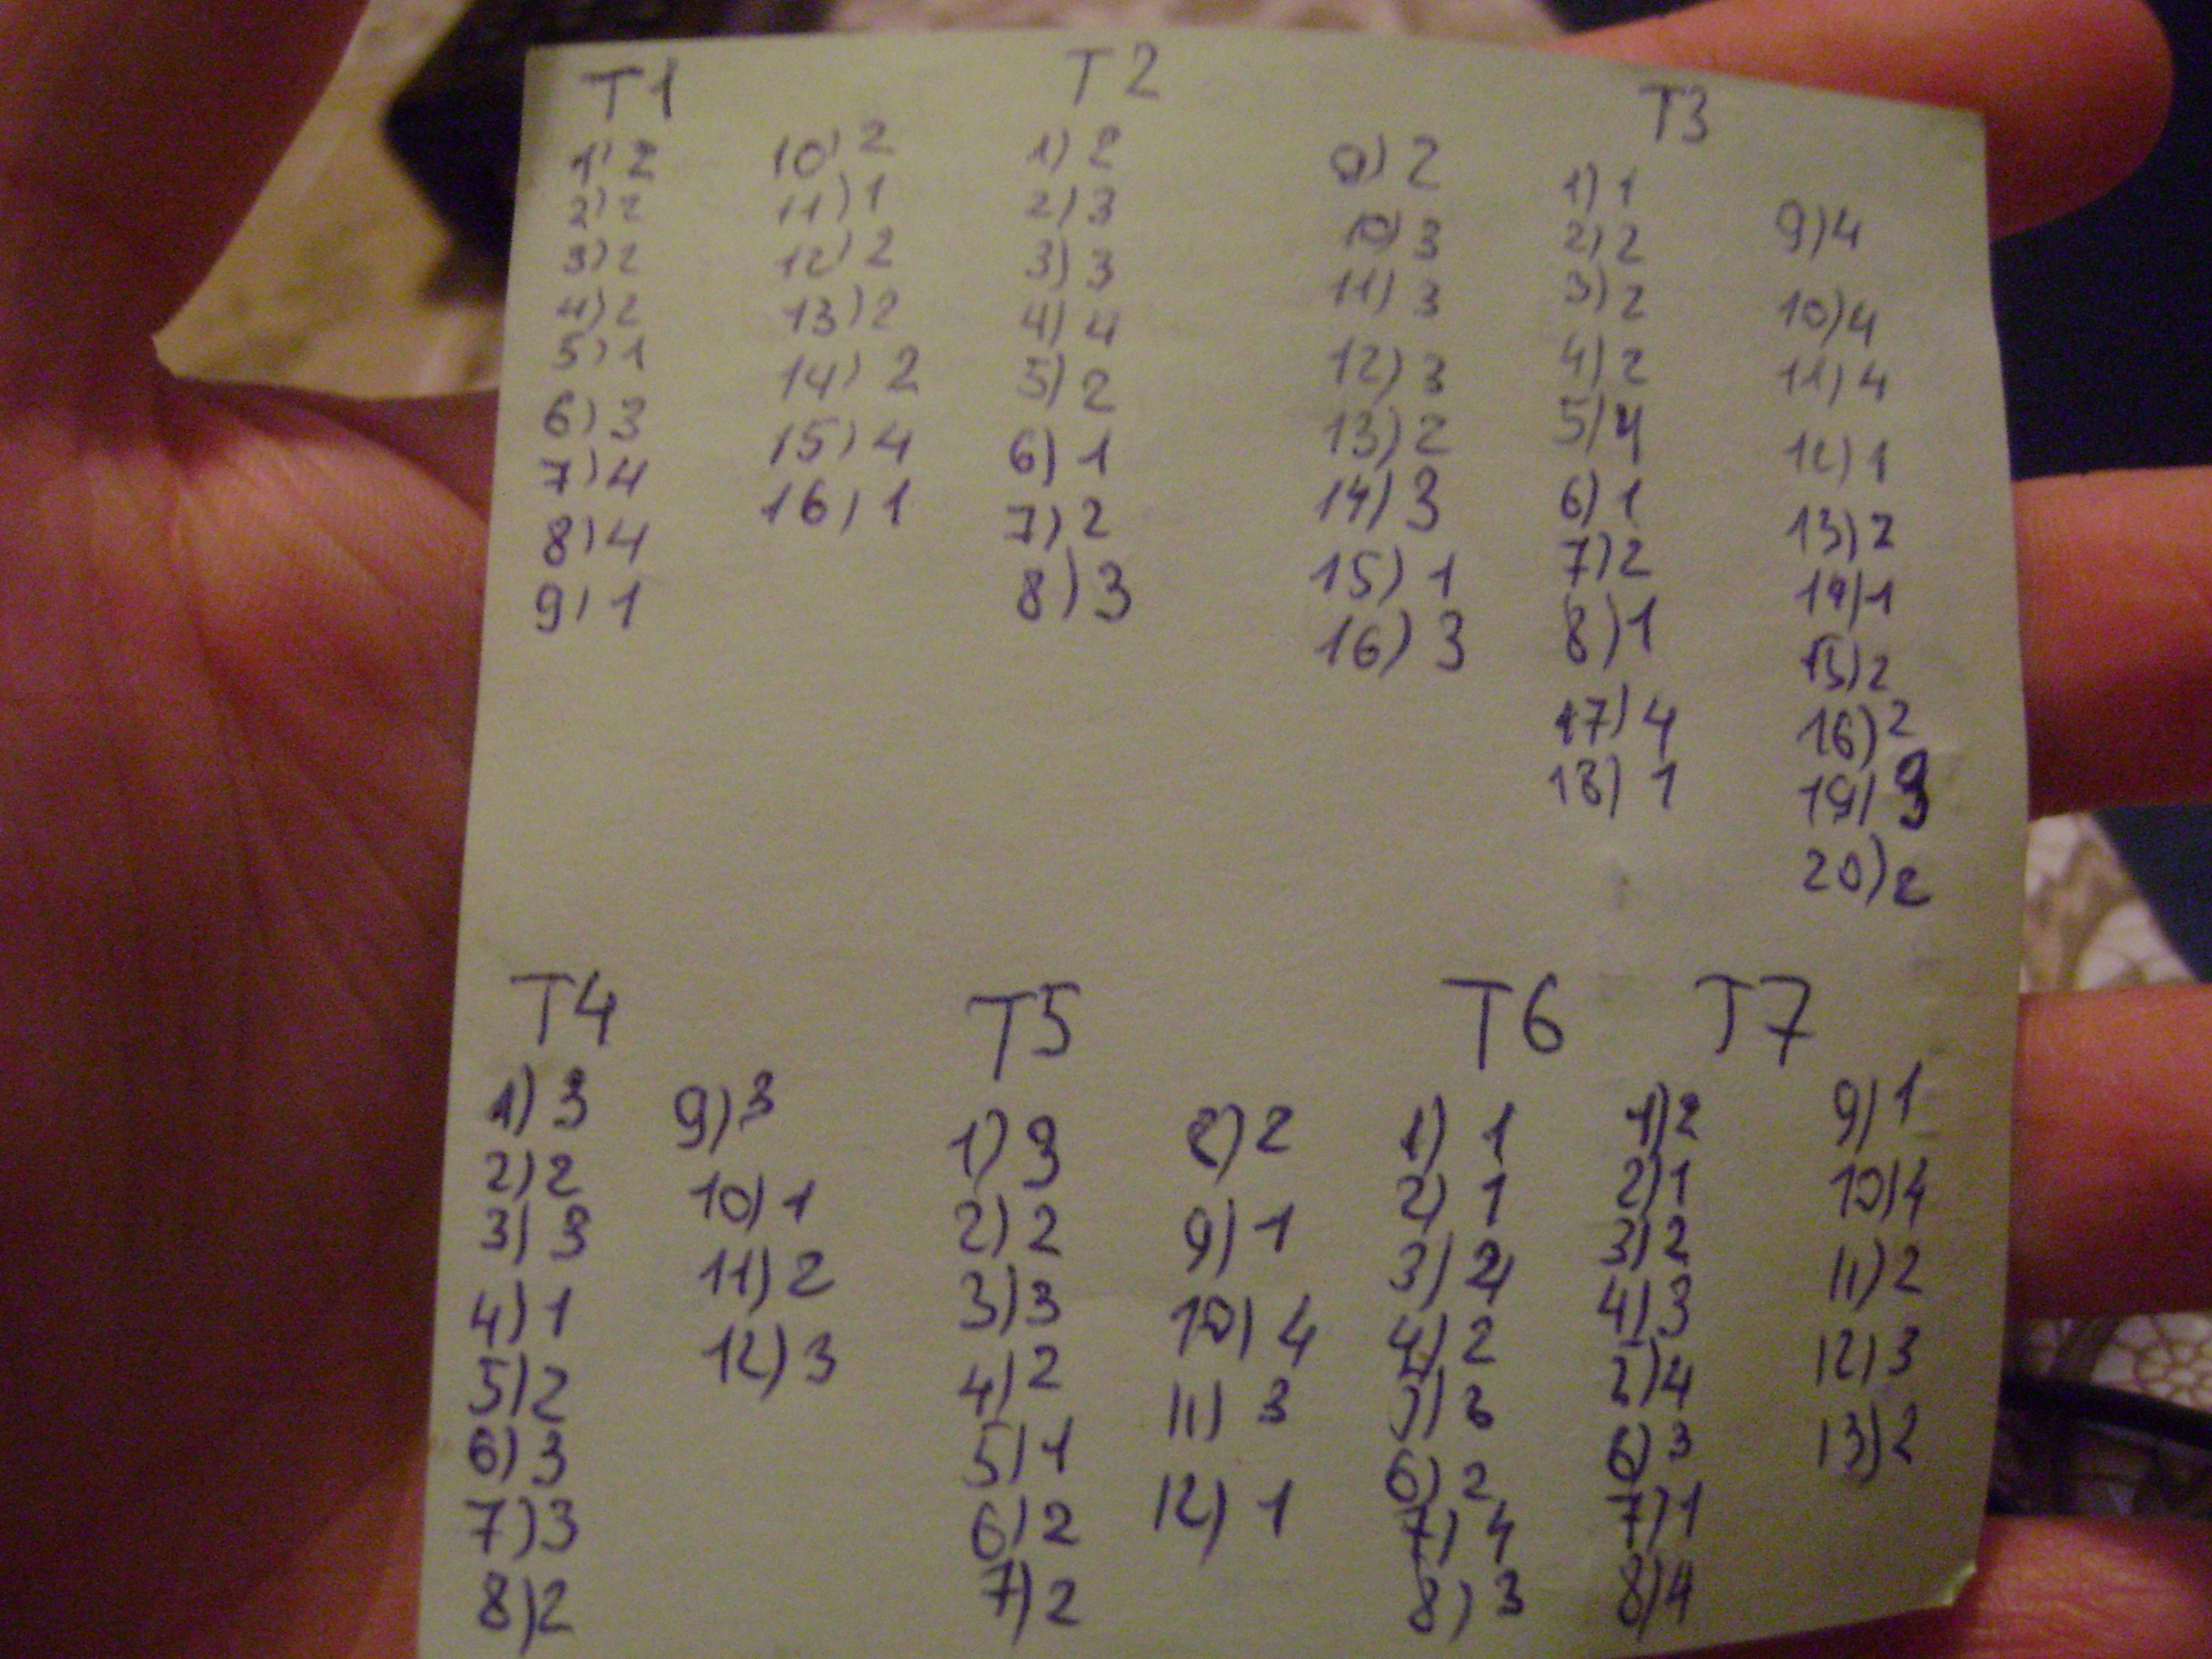 T1
1) 2
2) 2
3) 2
4) 2
5) 1
6) 3
7) 4
8) 4
9) 1
10) 2
11) 1
12) 2
13) 2
14) 2
15) 4
16) 1
T2
1) 2
2) 3
3) 3
4) 4
5) 2
6) 1
7) 2
8) 3
9) 2
10) 3
11) 3
12) 3
13) 2
14) 3
15) 1
16) 3
T3
1) 1
2) 2
3) 2
4) 2
5) 4
6) 1
7) 2
8) 1
17) 4
18) 1
9) 4
10) 4
11) 4
12) 1
13) 2
14) 1
15) 2
16) 2
19) 3
20) 2
T4
1) 3
2) 2
3) 3
4) 1
5) 2
6) 3
7) 3
8) 2
9) 3
10) 1
11) 2
12) 3
T5
1) 3
2) 2
3) 3
4) 2
5) 1
6) 2
7) 2
8) 2
9) 1
10) 4
11) 3
12) 1
T6
1) 1
2) 1
3)
4) 2
5) 3
6) 2
7) 4
8) 3
T7
1) 2
2) 1
3) 2
4) 3
5) 4
6) 3
7) 1
8) 4
9) 1
10) 4
11) 2
12) 3
13) 2